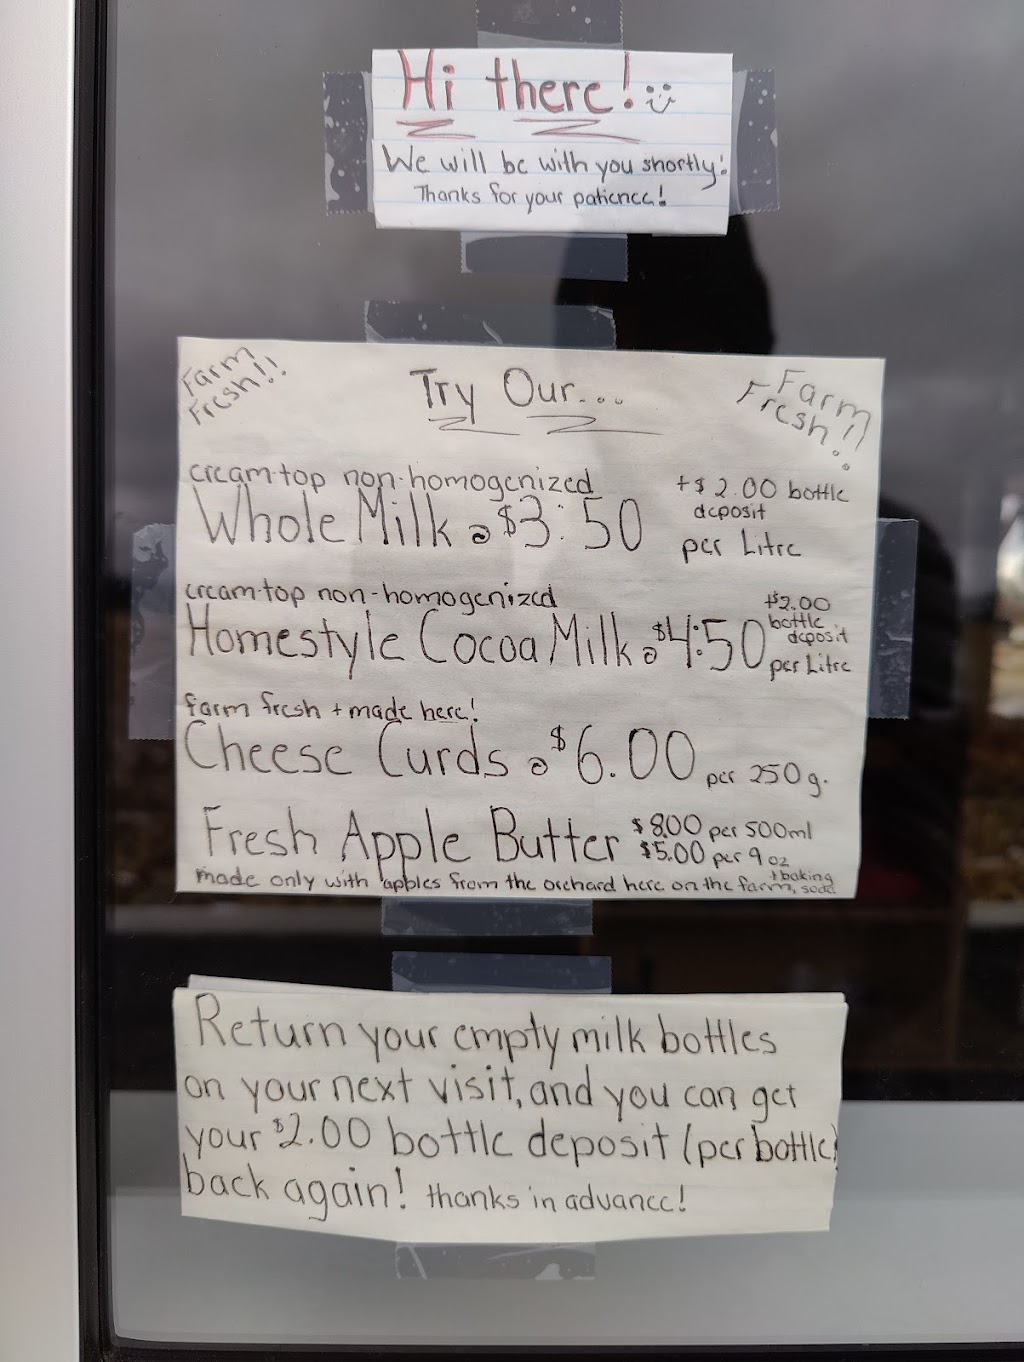 Hi there! :)
We will be with you shortly!
Thanks for your patience!
Farm
Fresh!!
Try Our...
Farm
Fresh!!
cream-top non-homogenized
Whole Milk @ $3:50
+$2.00 bottle
deposit
per Litre
cream-top non-homogenized
Homestyle Cocoa Milk @ $4:50
+$2.00
bottle
deposit
per Litre
farm fresh + made here!
Cheese Curds @ $6.00 per 250g.
Fresh Apple Butter
$8.00 per 500ml
$5.00 per 9 oz
made only with apples from the orchard here on the farm,
+ baking
soda
Return your empty milk bottles
on your next visit, and you can get
your $2.00 bottle deposit (per bottle)
back again! thanks in advance!